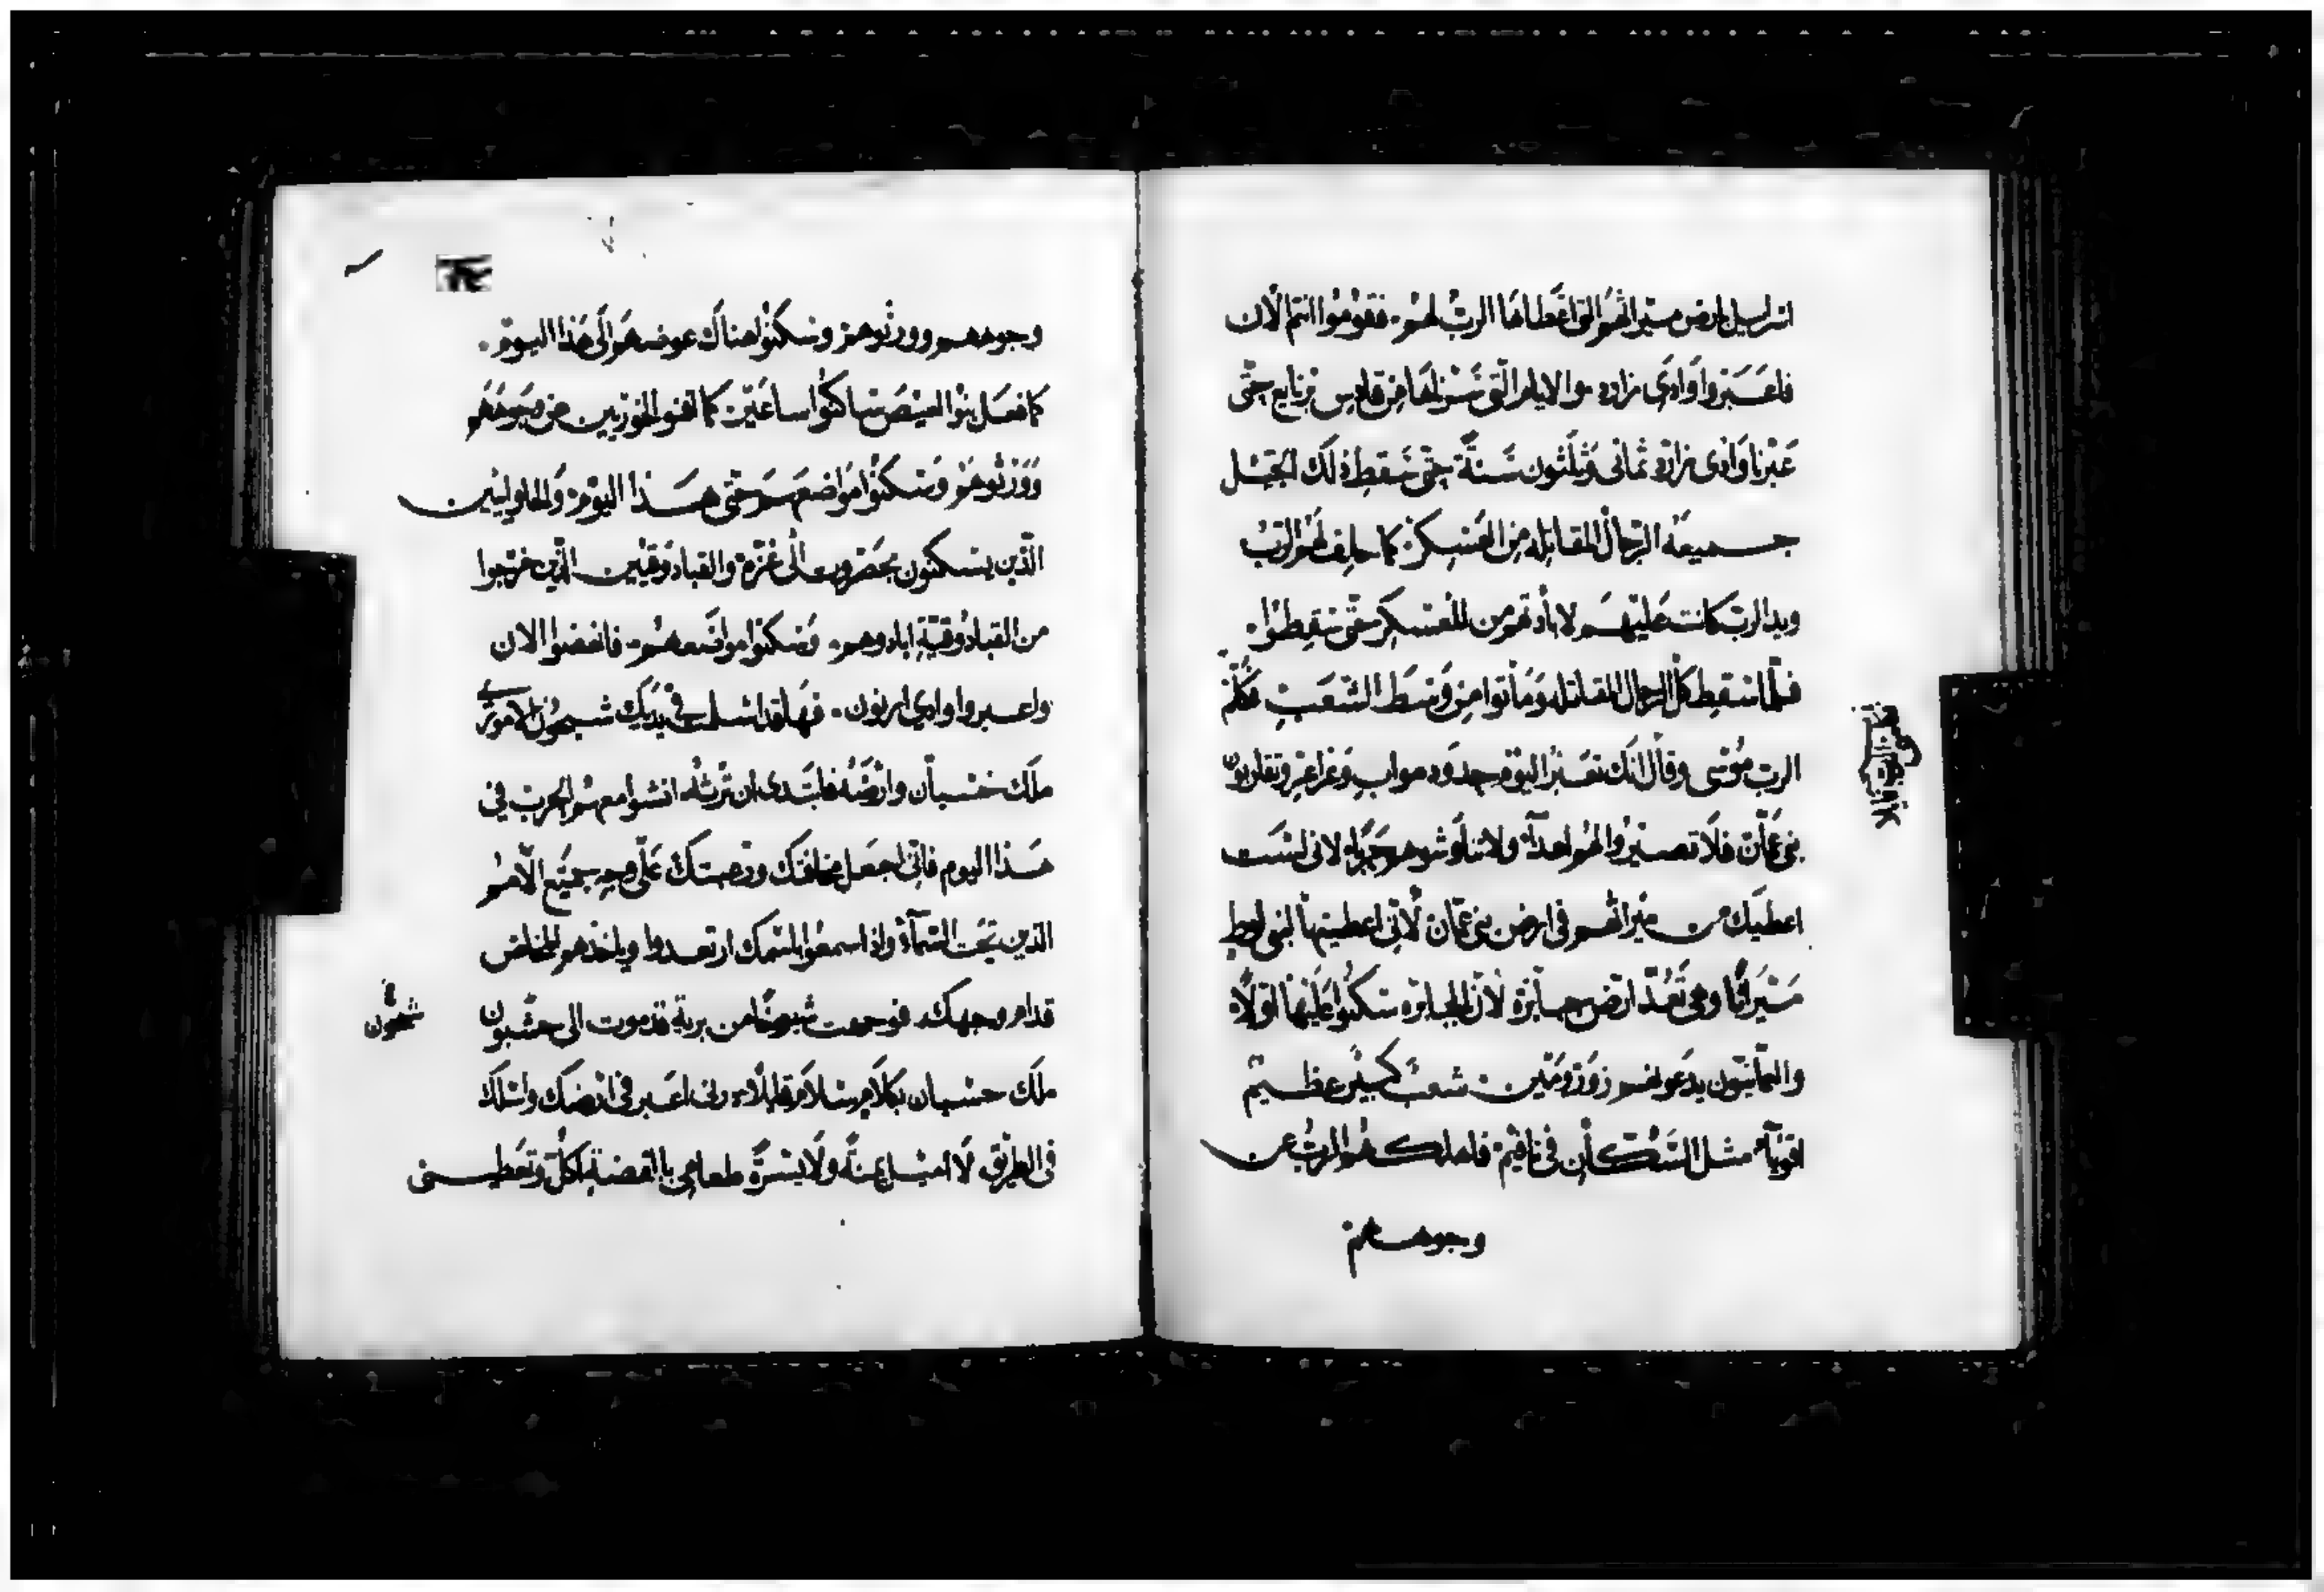 اسرايل ارض ميراثهم التى اعطاها الرب لهم. فقوموا انتم الان
فاعبروا وادى زارد. والايام التى سرناها من قادس برنايع حتى
عبرنا وادى زارد ثمانى وثلثون سنة حتى سقط ذلك الجيل
جميعه الرجال المقاتله من العسكر كما حلف لهم الرب
ويد الرب كانت عليهم لابادتهم من العسكر حتى سقطوا.
فلما سقط كل الرجال المقاتله وماتوا من وسط الشعب فكلم
الرب موسى وقال انك تعبر اليوم حدود مواب وعراعير وتقاربون
بنى عمان فلا تصيروا لهم اعدآء ولا تناوشوهم حربا لانى لست
اعطيك من ميراثهم فى ارض بنى عمان لانى اعطيتها لبنى لوط
ميراثا وهى تعد ارض جبابرة لان الجبابرة سكنوا عليها اولا
والعمانيون يدعونهم زوزومين شعب كبير عظيم
اقويآء مثل السكان فى ناقيم فاهلكهم الرب عن
وجوههم
وجوههم وورثوهم وسكنوا هناك عوضهم الى هذا اليوم.
كما فعل بنوا العيص ساكنوا ساعير كما افنوا الخوريين من وجوههم
وورثوهم وسكنوا مواضعهم حتى هذا اليوم. والحاوليين
الذين يسكنون بحصروت الى غزة والقبادوقيين الذين خرجوا
من القبادوقية ابادوهم. وسكنوا مواضعهم. فانهضوا الان
واعبروا وادي ارنون. فها قد اسلمت فى يديك شيحون الاموري
ملك حسبان وارضه فابتدى ان ترثه انشوا معهم الحرب فى
هذا اليوم فانى اجعل مخافتك ورهبتك على وجه جميع الامم
الذين تحت السمآء واذا سمعوا باسمك ارتعدوا وياخذهم المخاض
قدام وجهك. فوجهت شيوخا من برية قدموت الى حشبون
شيحون
ملك حسبان بكلام سلام قايلا. دعنى اعبر فى ارضك واسلك
فى الطريق لا اميل يمنة ولا يسرة طعامى باالفضة اكل وتعطينى